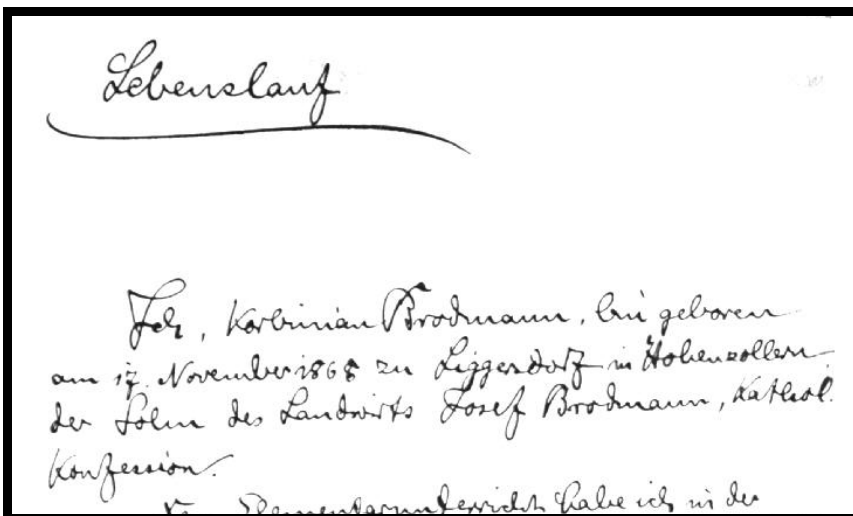 Lebenslauf
Ich, Korbinian Brodmann, bin geboren
am 17. November 1868 zu Liggersdorf in Hohenzollern
der Sohn des Landwirts Josef Brodmann, Kathol.
Konfession.
Elementarunterricht habe ich in der